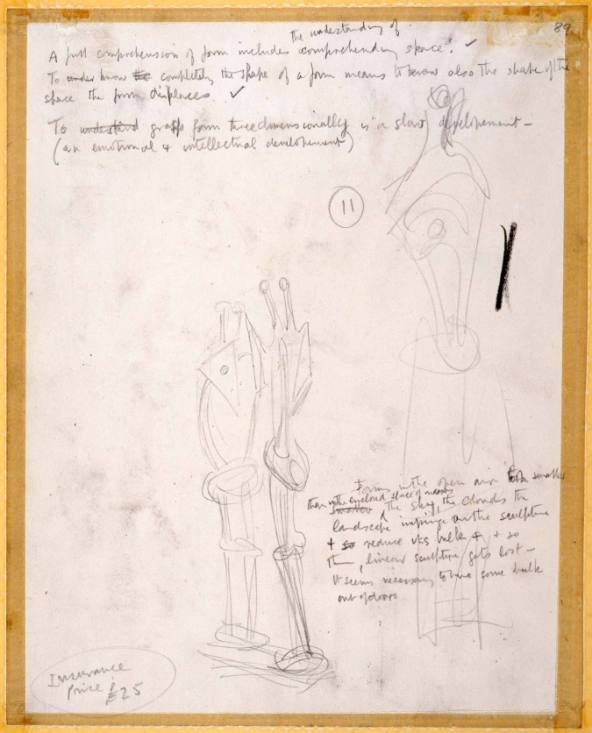 89
the understanding of
A full comprehension of form includes comprehending space. ✓
To under know the completely the shape of a form means to know also the shape of the
space the form displaces ✓
To understand grasp form three dimensionally is a slow developement –
(an emotional & intellectual developement)
11
Forms in the open air look smaller
than in the enclosed space of rooms
smaller & the sky, the clouds the
landscape impinge on the sculpture
+ so reduce its bulk & + so
linear sculpture gets lost –
It seems necessary to have some bulk
out of doors
Insurance
Price £25